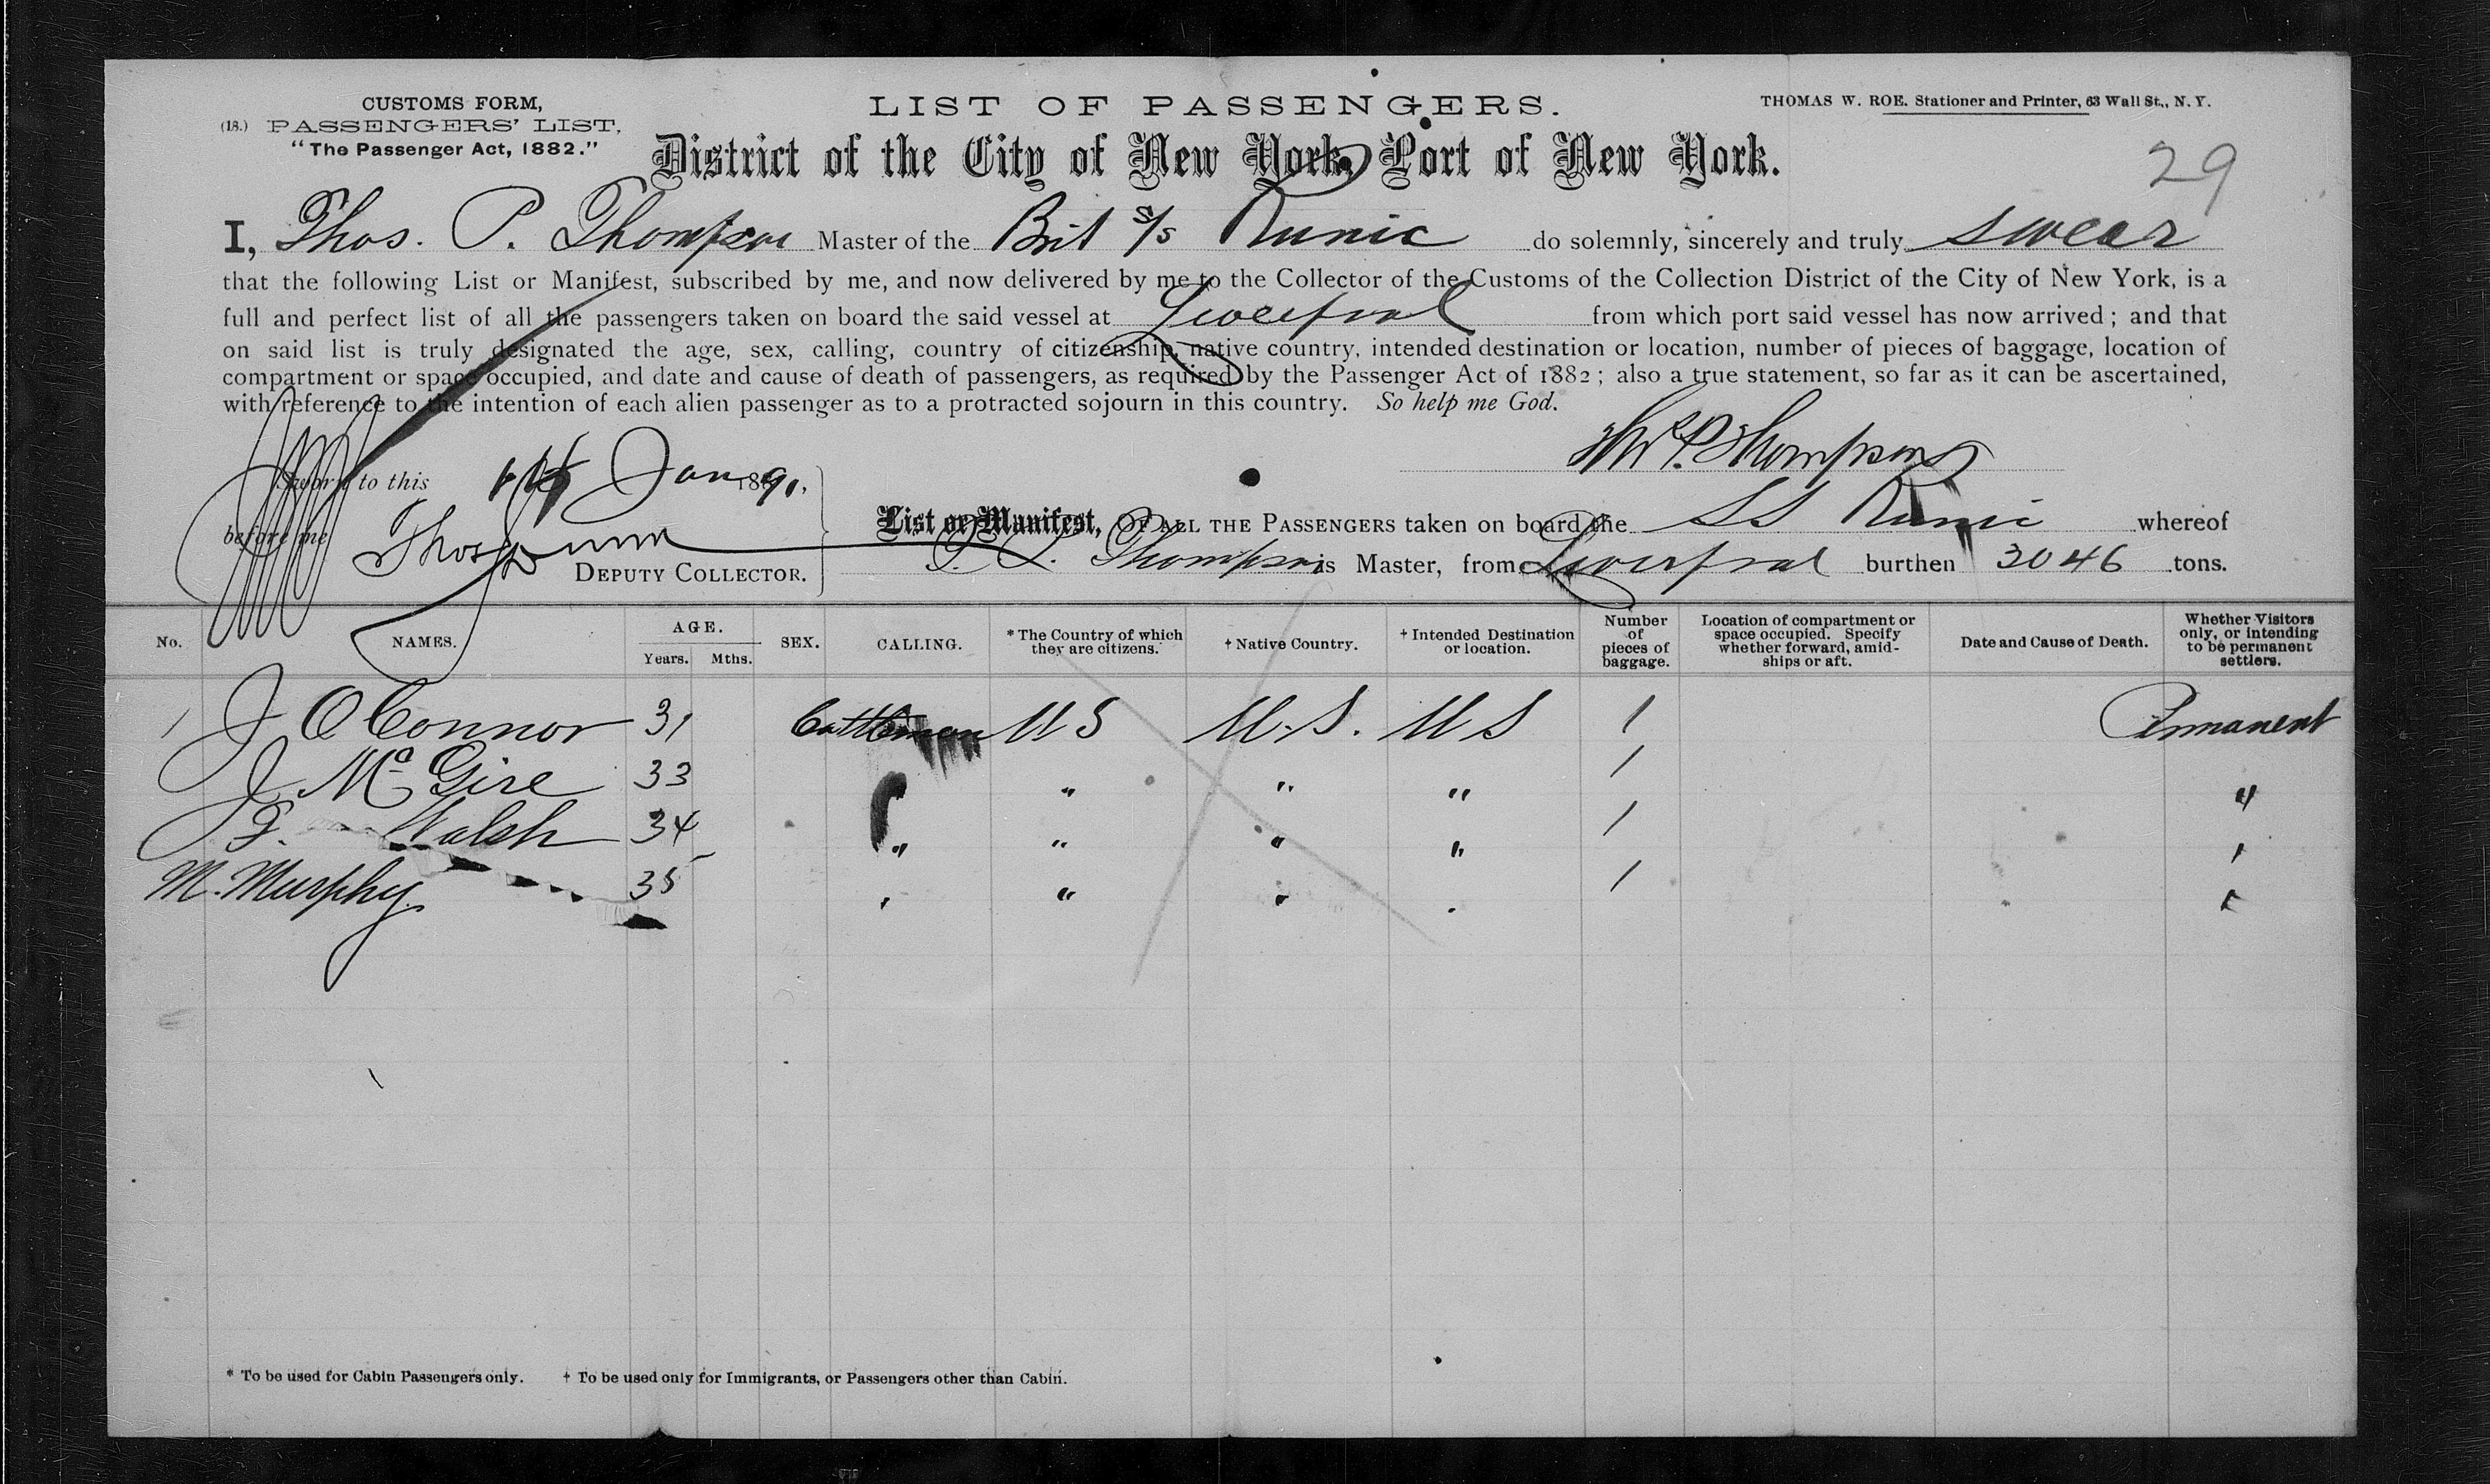 CUSTOMS FORM,
(18.) PASSENGERS' LIST,
"The Passenger Act, 1882."
LIST OF PASSENGERS.
THOMAS W. ROE. Stationer and Printer, 63 Wall St., N. Y.
District of the City of New York, Port of New York.
29
I, Thos. P. Thompson Master of the Brit S/S Runic do solemnly, sincerely and truly swear
that the following List or Manifest, subscribed by me, and now delivered by me to the Collector of the Customs of the Collection District of the City of New York, is a
full and perfect list of all the passengers taken on board the said vessel at Liverpool from which port said vessel has now arrived; and that
on said list is truly designated the age, sex, calling, country of citizenship, native country, intended destination or location, number of pieces of baggage, location of
compartment or space occupied, and date and cause of death of passengers, as required by the Passenger Act of 1882; also a true statement, so far as it can be ascertained,
with reference to the intention of each alien passenger as to a protracted sojourn in this country. So help me God.
Thos P. Thompson
Sworn to this Jan 1891,
before me Thos
DEPUTY COLLECTOR.
List or Manifest, OF ALL THE PASSENGERS taken on board the SS Runic whereof
Thompson is Master, from Liverpool burthen 3046 tons.
No. NAMES. AGE. Years. Mths. SEX. CALLING. * The Country of which they are citizens. † Native Country. † Intended Destination or location. Number of pieces of baggage. Location of compartment or space occupied. Specify whether forward, amid-ships or aft. Date and Cause of Death. Whether Visitors only, or intending to be permanent settlers.
1 J O Connor 31 Cattleman U S U.S. U S 1 Permanent
J Mc Gire 33 " " " 1 "
F. Walsh 34 " " " " 1 "
M. Murphy 35 " " " " 1 "
* To be used for Cabin Passengers only. † To be used only for Immigrants, or Passengers other than Cabin.